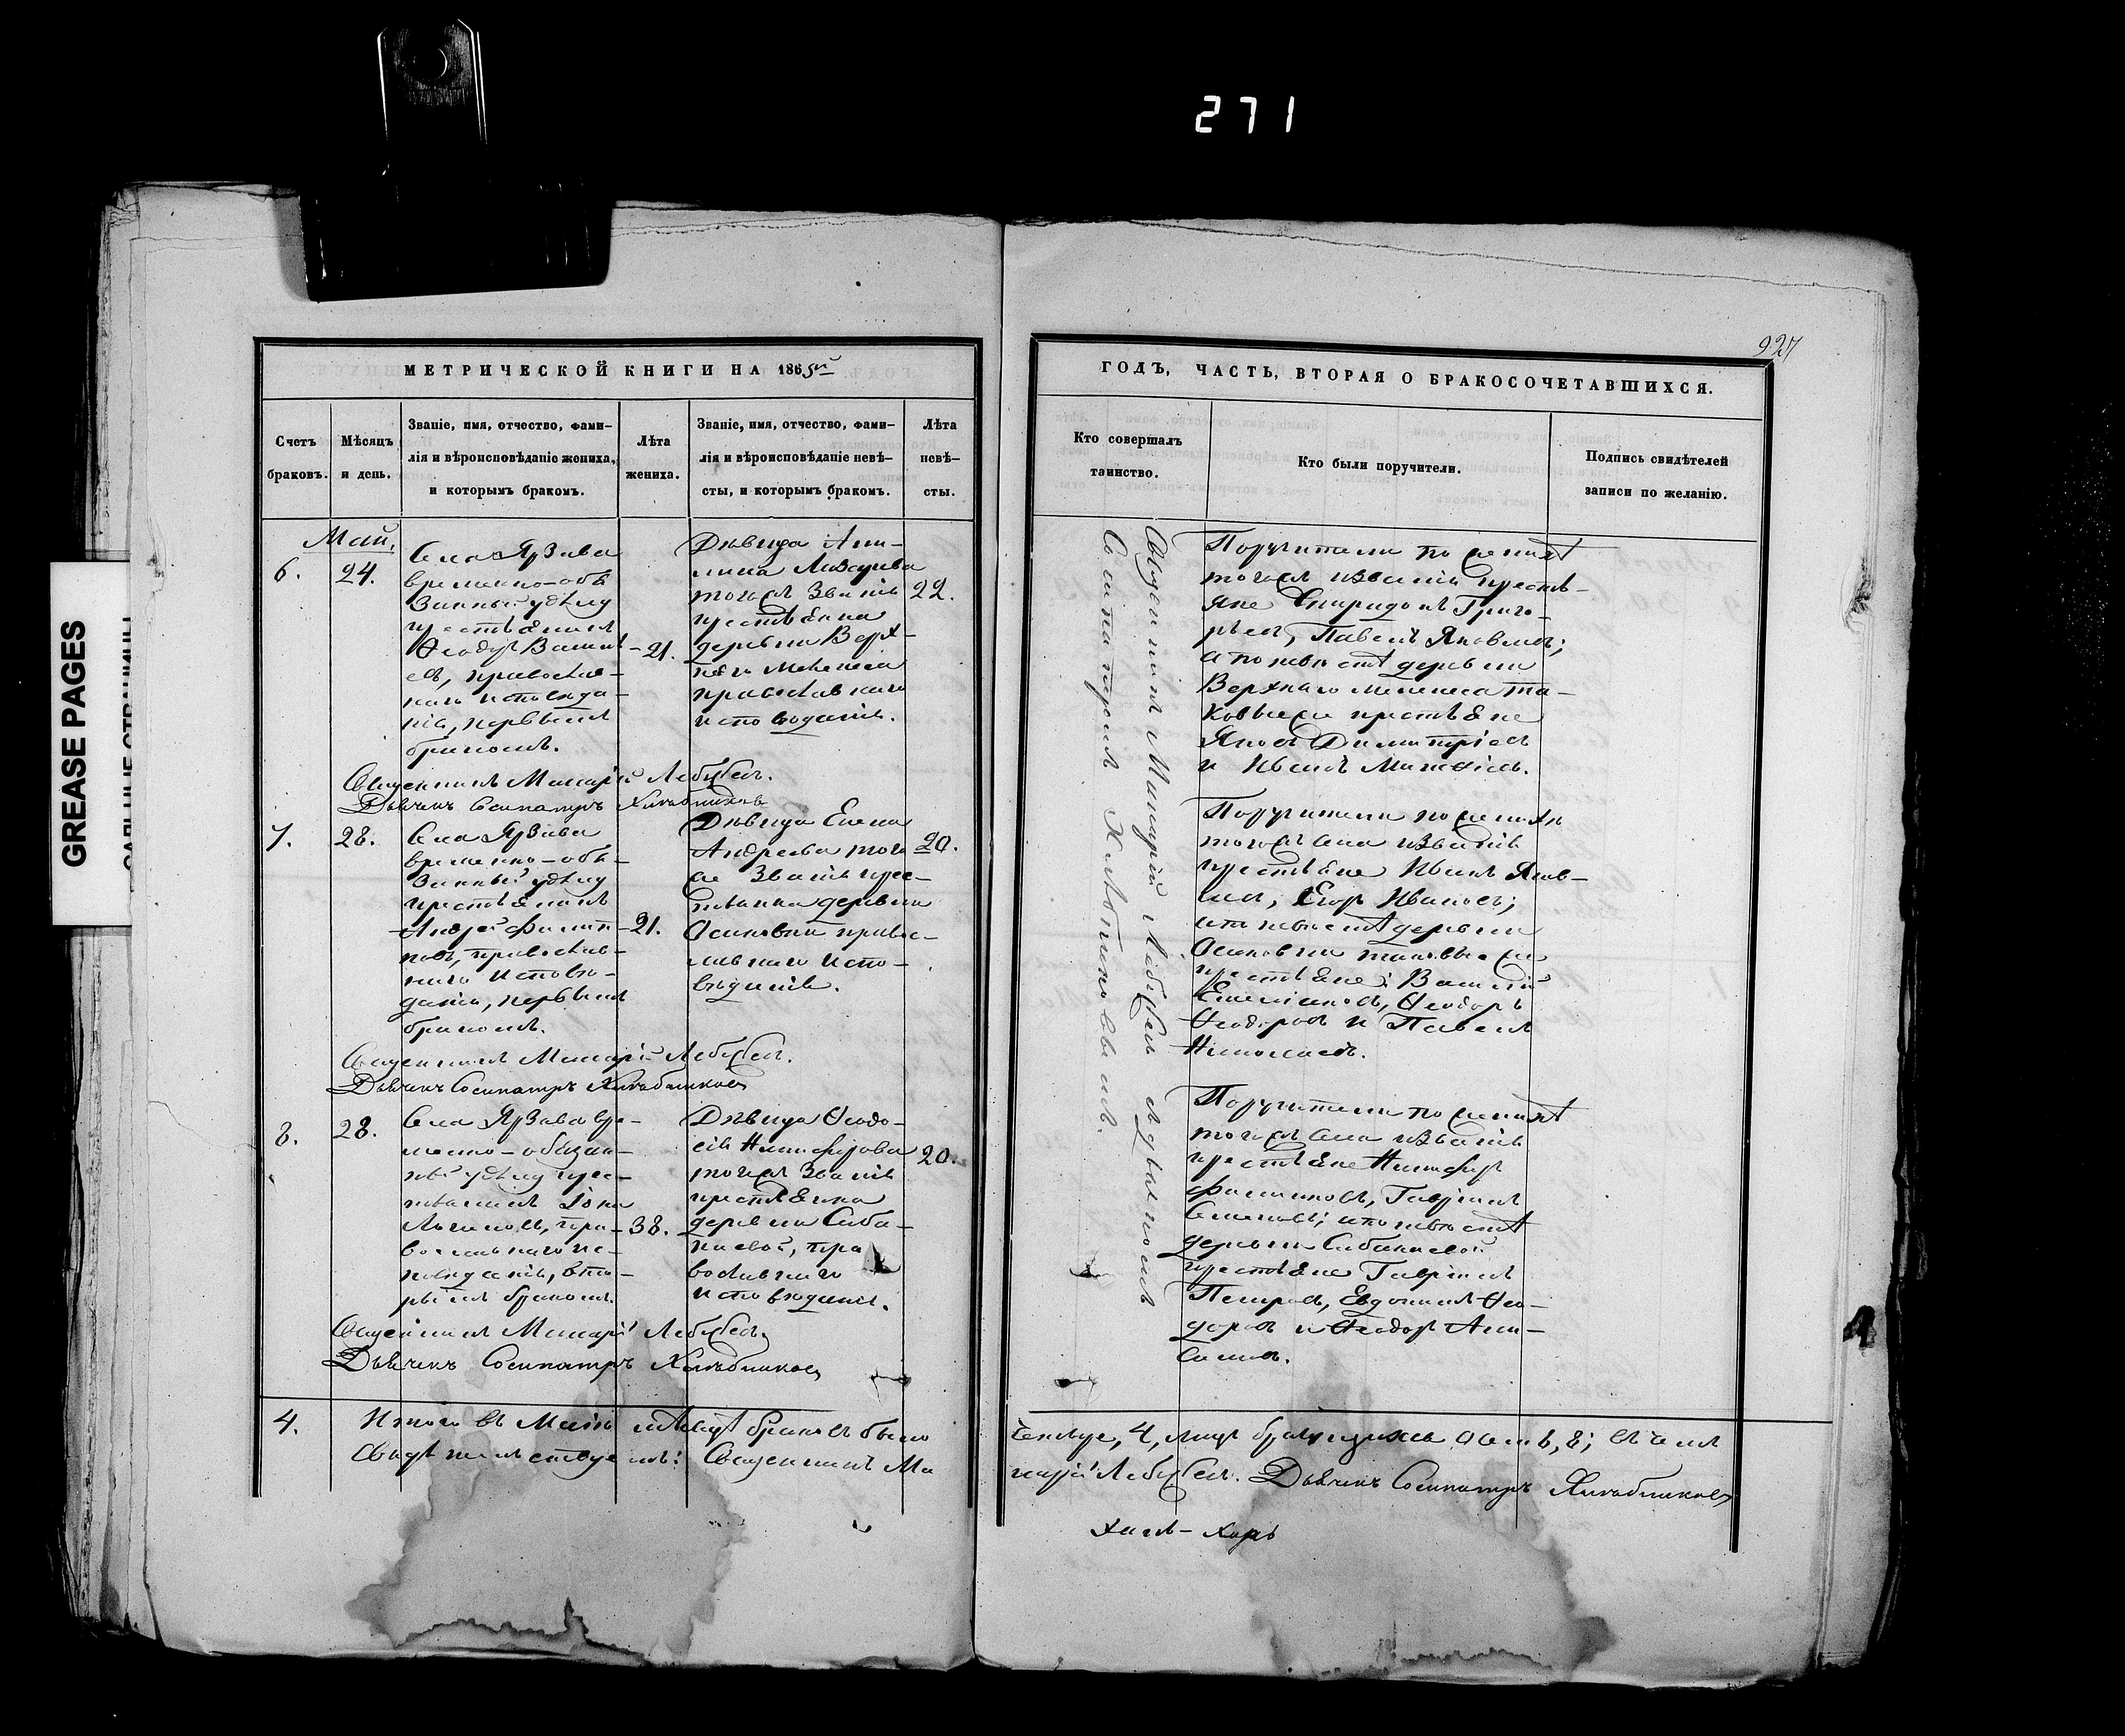 271
GREASE PAGES
927
МЕТРИЧЕСКОЙ КНИГИ НА 1865й
Счетъ браковъ.
Мѣсяцъ и день.
Званіе, имя, отчество, фами-
лія и вѣроисповѣданіе жениха,
и которымъ бракомъ.
Лѣта
жениха.
Званіе, имя, отчество, фами-
лія и вѣроисповѣданіе невѣ-
сты, и которымъ бракомъ.
Лѣта
невѣ-
сты.
Май.
6.
24.
Села
временно-обя
занный удѣлу
крестьянинъ
Ѳеодоръ Василь
евъ, православ-
наго исповѣда-
нія, первымъ
бракомъ.
21.
Дѣвица
тогоже званія
крестьянка
деревни Верх-
няго
православнаго
исповѣданія.
22.
Священникъ Макарій Лебедевъ.
Дьячекъ Сосипатръ Хлѣбниковъ
7.
28.
Села
временно-обя-
занный удѣлу
крестьянинъ
Андрей Филип-
повъ, православ-
наго исповѣ-
данія, первымъ
бракомъ.
21.
Дѣвица Елена
Андреева того
же званія крес-
тьянка деревни
Осиновки правос-
лавнаго испо-
вѣданія.
20.
Священникъ Макарій Лебедевъ.
Дьячекъ Сосипатръ Хлѣбниковъ
8.
28.
Села вре-
менно-обязан-
ный удѣлу крес-
тьянинъ Іона
Логиновъ, пра-
вославнаго ис-
повѣданія, вто-
рымъ бракомъ.
38.
Дѣвица Ѳеодо-
сія Никифорова
тогоже званія
крестьянка
деревни
пра
вославнаго
исповѣданія.
20.
Священникъ Макарій Лебедевъ,
Дьячекъ Сосипатръ Хлѣбниковъ
4.
Итого въ Маіѣ мѣсяцѣ браковъ было
Свидѣтельствуемъ: Священникъ Ма
ГОДЪ, ЧАСТЬ, ВТОРАЯ О БРАКОСОЧЕТАВШИХСЯ.
Кто совершалъ
таинство.
Кто были поручители.
Подпись свидѣтелей
записи по желанію.
Священникъ Макарій Лебедевъ съ дьячкомъ
Сосипатромъ Хлѣбниковымъ.
Поручители по женихѣ
тогоже званія крестья-
яне Спиридонъ Григо-
рьевъ, Павелъ Яковлевъ;
а по невѣстѣ деревни
Верхняго та-
ковыеже крестьяне
Яковъ Димитріевъ
и Иванъ
Поручители по женихѣ
тогоже села и званія
крестьяне Иванъ Яков-
левъ, Егоръ Ивановъ;
а по невѣстѣ деревни
Осиновки таковыеже
крестьяне: Василій
Емельяновъ, Ѳеодоръ
Ѳеодоровъ и Павелъ
Николаевъ.
Поручители по женихѣ
тогоже села и званія
крестьяне Никифоръ
Филиповъ, Гавріилъ
Семеновъ; а по невѣстѣ
деревни
крестьяне Гавріилъ
Петровъ, Евдокимъ Ѳео-
доровъ и Ѳеодоръ

четыре, 4, лицъ осмь, 8; въ чемъ
карій Лебедевъ. Дьячекъ Сосипатръ Хлѣбниковъ